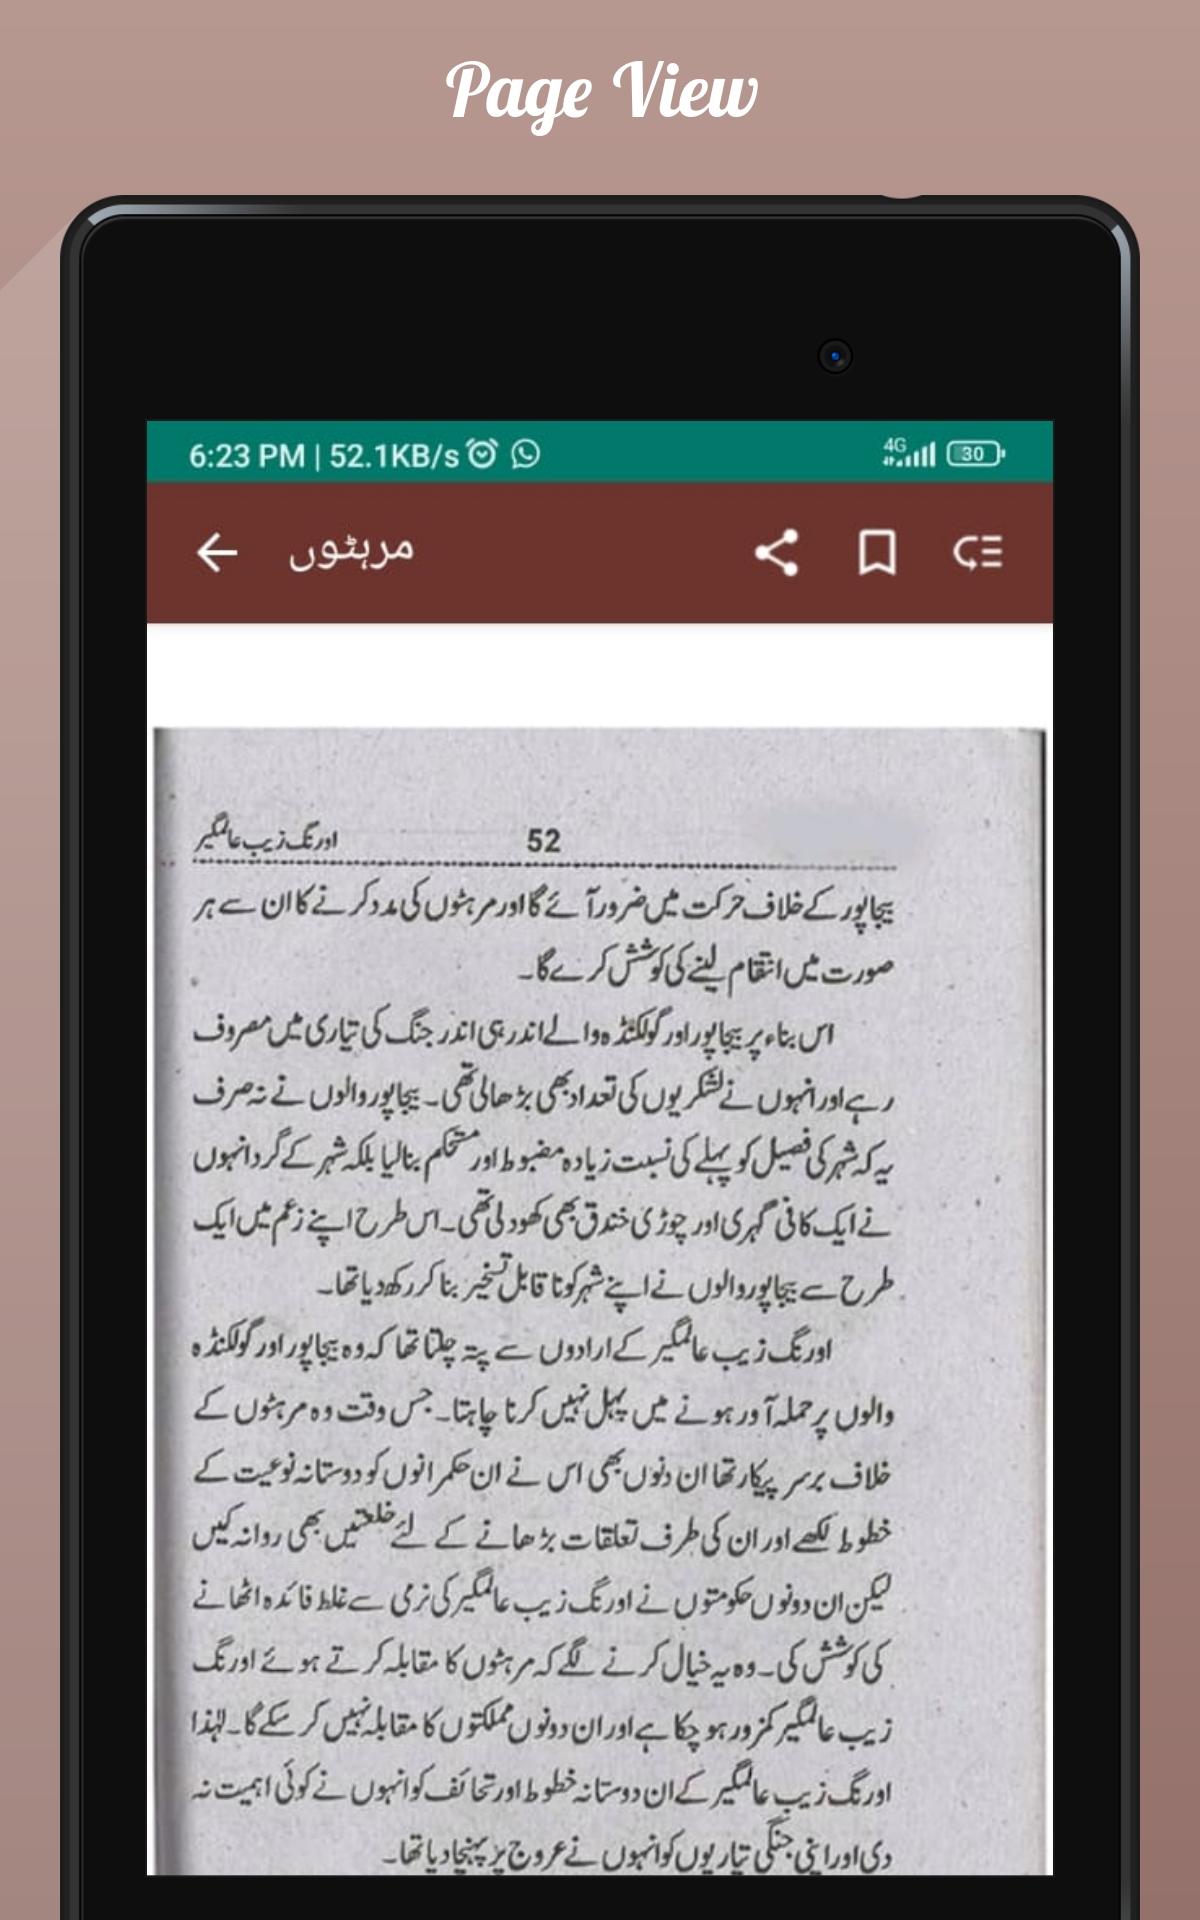 Page View
6:23 PM | 52.1KB/s
4G
30
مرہٹوں
اورنگ زیب عالمگیر
52
بیجاپور کے خلاف حرکت میں ضرور آئے گا اور مرہٹوں کی مدد کرنے کا ان سے ہر
صورت میں انتقام لینے کی کوشش کرے گا۔
اس بناء پر بیجاپور اور گولکنڈہ والے اندر ہی اندر جنگ کی تیاری میں مصروف
رہے اور انہوں نے لشکریوں کی تعداد بھی بڑھا لی تھی۔ بیجاپور والوں نے نہ صرف
یہ کہ شہر کی فصیل کو پہلے کی نسبت زیادہ مضبوط اور مستحکم بنا لیا بلکہ شہر کے گرد انہوں
نے ایک کافی گہری اور چوڑی خندق بھی کھود لی تھی۔ اس طرح اپنے زعم میں ایک
طرح سے بیجاپور والوں نے اپنے شہر کو ناقابل تسخیر بنا کر رکھ دیا تھا۔
اورنگ زیب عالمگیر کے ارادوں سے پتہ چلتا تھا کہ وہ بیجاپور اور گولکنڈہ
والوں پر حملہ آور ہونے میں پہل نہیں کرنا چاہتا۔ جس وقت وہ مرہٹوں کے
خلاف برسر پیکار تھا ان دنوں بھی اس نے ان حکمرانوں کو دوستانہ نوعیت کے
خطوط لکھے اور ان کی طرف تعلقات بڑھانے کے لئے خلعتیں بھی روانہ کیں
لیکن ان دونوں حکومتوں نے اورنگ زیب عالمگیر کی نرمی سے غلط فائدہ اٹھانے
کی کوشش کی۔ وہ یہ خیال کرنے لگے کہ مرہٹوں کا مقابلہ کرتے ہوئے اورنگ
زیب عالمگیر کمزور ہو چکا ہے اور ان دونوں مملکتوں کا مقابلہ نہیں کر سکے گا۔ لہٰذا
اورنگ زیب عالمگیر کے ان دوستانہ خطوط اور تحائف کو انہوں نے کوئی اہمیت نہ
دی اور اپنی جنگی تیاریوں کو انہوں نے عروج پر پہنچا دیا تھا۔